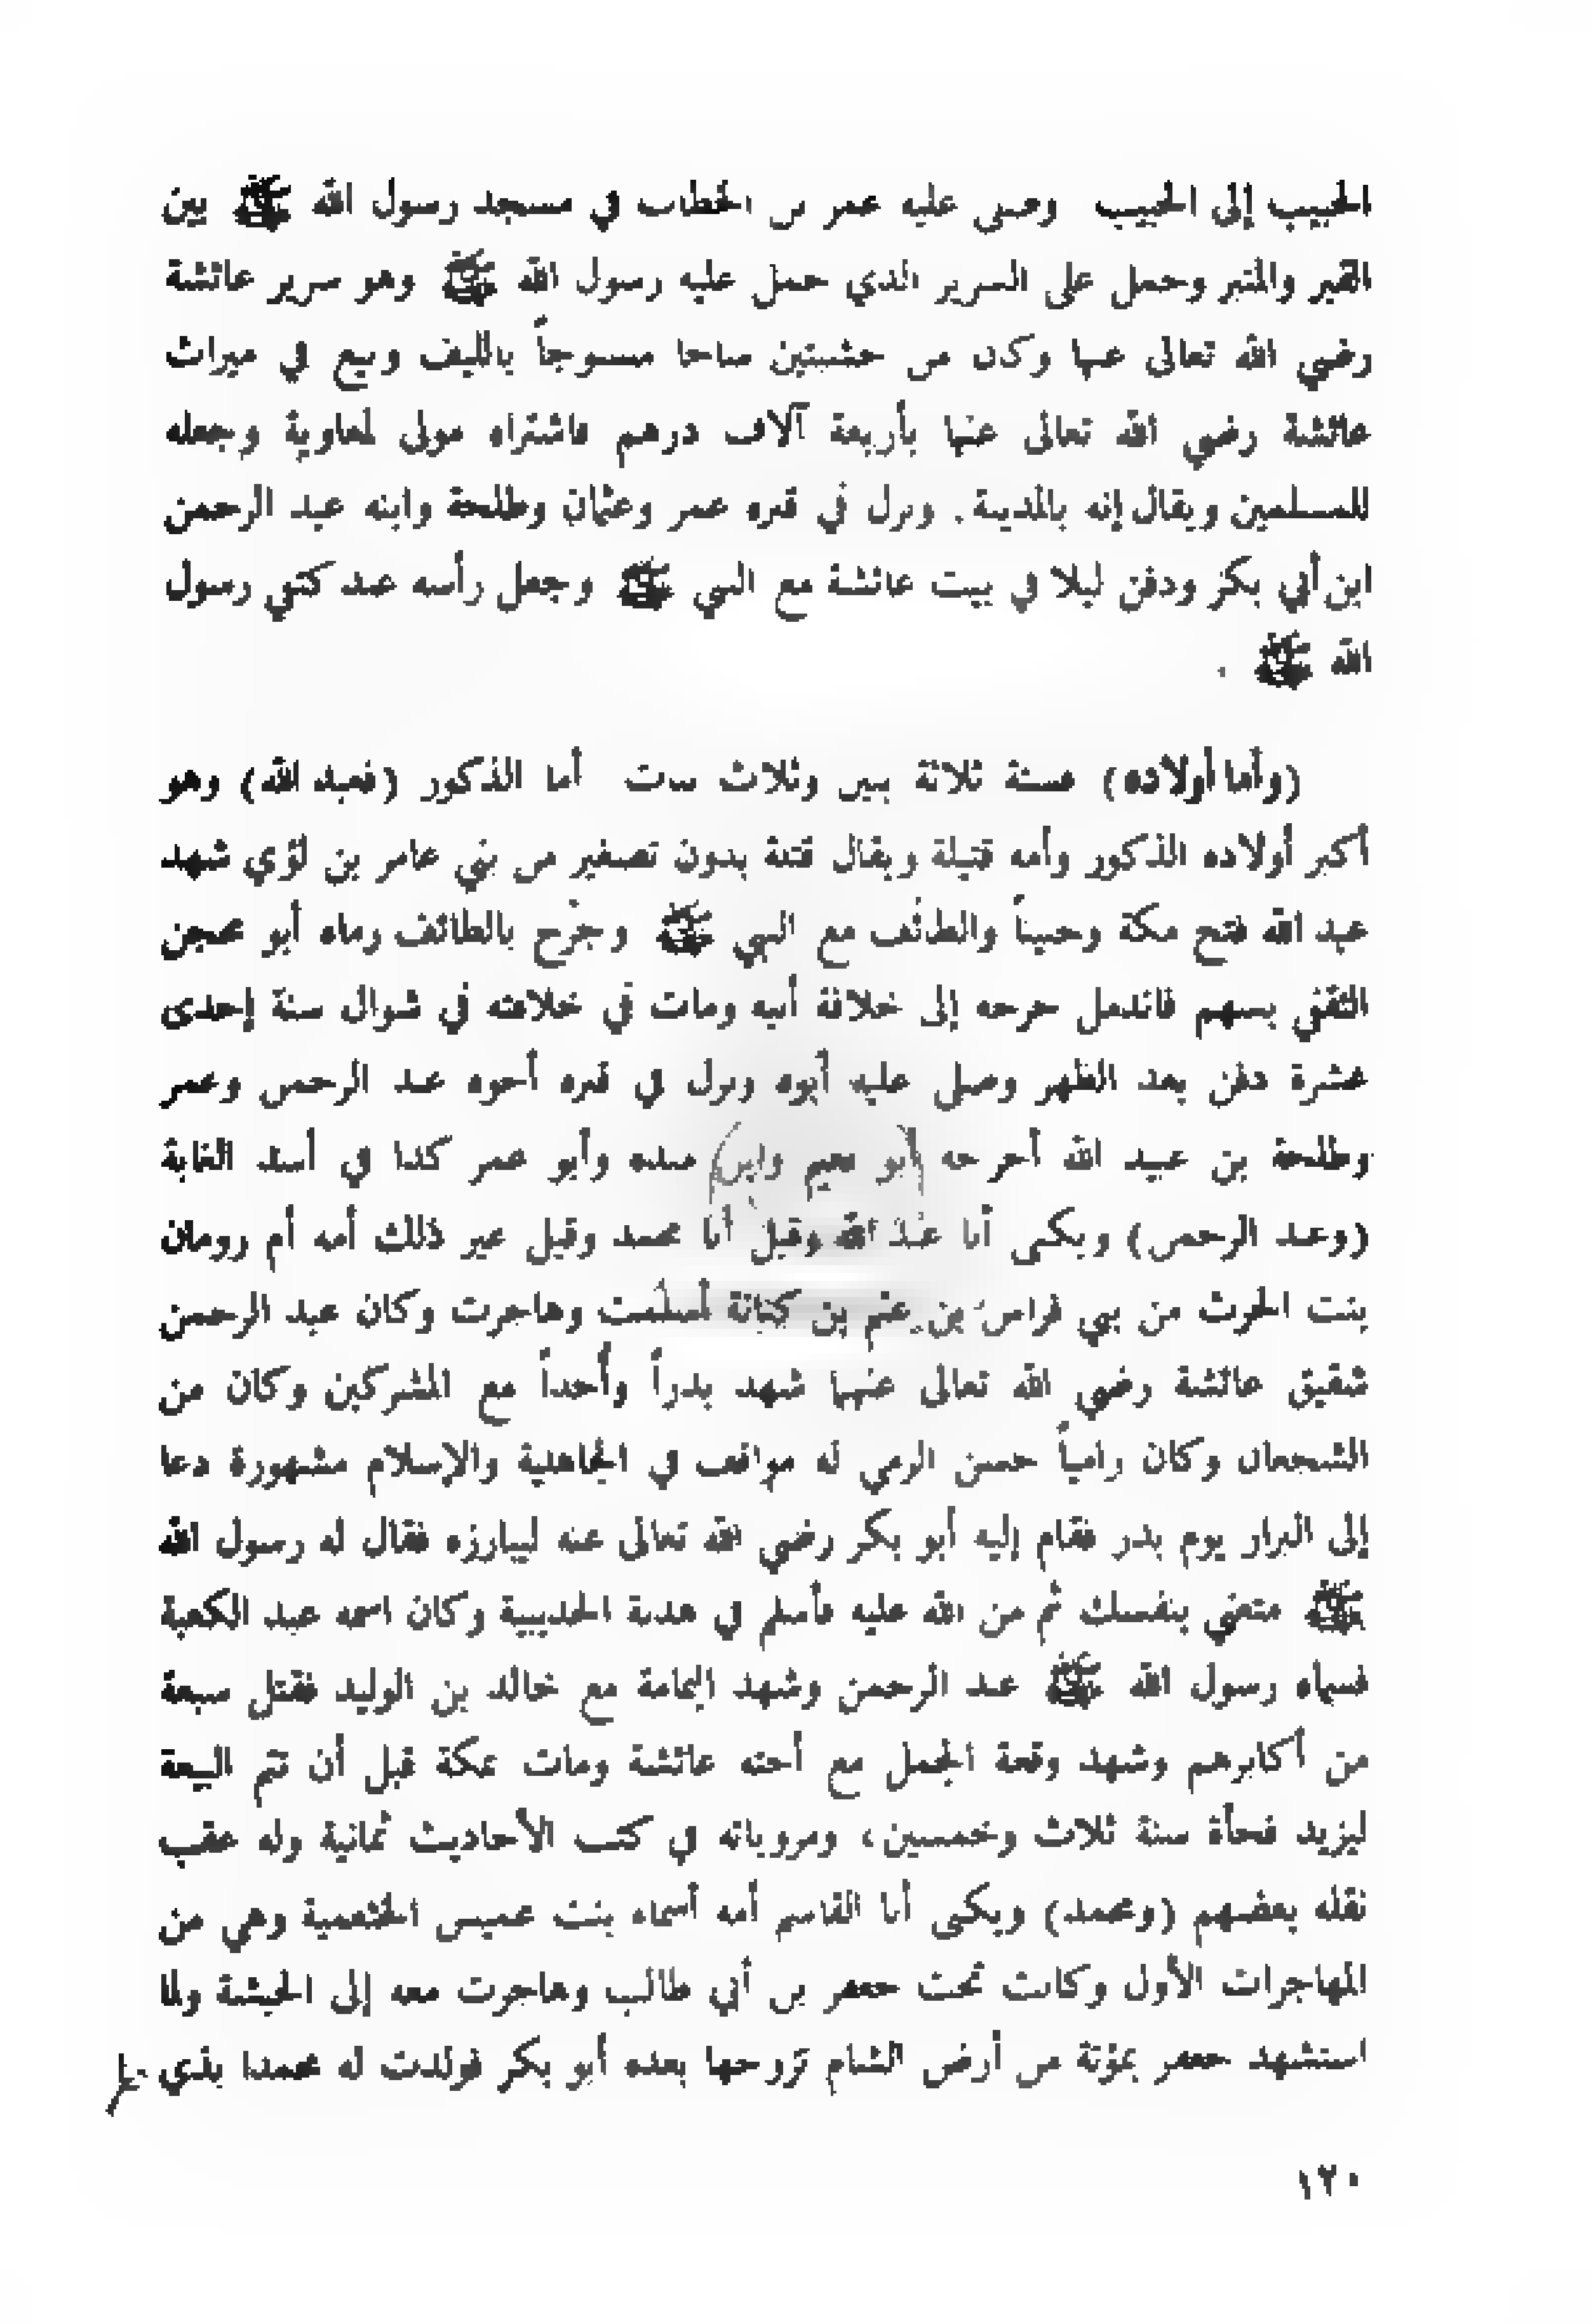 الحبيب إلى الحبيب وصلى عليه عمر بن الخطاب في مسجد رسول الله ﷺ بين
القبر والمنبر وحمل على السرير الذي حمل عليه رسول الله ﷺ وهو سرير عائشة
رضي الله تعالى عنها وكان من خشبتين ساجا منسوجاً بالليف وبيع في ميراث
عائشة رضي الله تعالى عنها بأربعة آلاف درهم فاشتراه مولى لمعاوية وجعله
للمسلمين ويقال إنه بالمدينة. ونزل في قبره عمر وعثمان وطلحة وابنه عبد الرحمن
ابن أبي بكر ودفن ليلا في بيت عائشة مع النبي ﷺ وجعل رأسه عند كتفي رسول
الله ﷺ .
(وأما أولاده) فستة ثلاثة بنين وثلاث بنات أما الذكور (فعبد الله) وهو
أكبر أولاده الذكور وأمه قتيلة ويقال قتلة بدون تصغير من بني عامر بن لؤي شهد
عبد الله فتح مكة وحنيناً والطائف مع النبي ﷺ وجرح بالطائف رماه أبو محجن
الثقفي بسهم فاندمل جرحه إلى خلافة أبيه ومات في خلافته في شوال سنة إحدى
عشرة دفن بعد الظهر وصلى عليه أبوه ونزل في قبره أخوه عبد الرحمن وعمر
وطلحة بن عبيد الله أخرجه (أبو نعيم وابن) منده وأبو عمر كذا في أسد الغابة
(وعبد الرحمن) ويكنى أبا عبد الله وقيل أبا محمد وقيل غير ذلك أمه أم رومان
بنت الحرث من بني فراس بن غنم بن كنانة أسلمت وهاجرت وكان عبد الرحمن
شقيق عائشة رضي الله تعالى عنهما شهد بدراً وأحداً مع المشركين وكان من
الشجعان وكان رامياً حسن الرمي له مواقف في الجاهلية والإسلام مشهورة دعا
إلى البراز يوم بدر فقام إليه أبو بكر رضي الله تعالى عنه ليبارزه فقال له رسول الله
ﷺ متعني بنفسك ثم من الله عليه فأسلم في هدنة الحديبية وكان اسمه عبد الكعبة
فسماه رسول الله ﷺ عبد الرحمن وشهد اليمامة مع خالد بن الوليد فقتل سبعة
من أكابرهم وشهد وقعة الجمل مع أخته عائشة ومات بمكة قبل أن تتم البيعة
ليزيد فجأة سنة ثلاث وخمسين، ومروياته في كتب الأحاديث ثمانية وله عقب
نقله بعضهم (ومحمد) ويكنى أبا القاسم أمه أسماء بنت عميس الخثعمية وهي من
المهاجرات الأول وكانت تحت جعفر بن أبي طالب وهاجرت معه إلى الحبشة ولما
استشهد جعفر بمؤتة من أرض الشام تزوجها بعده أبو بكر فولدت له محمدا بذي
١٢٠